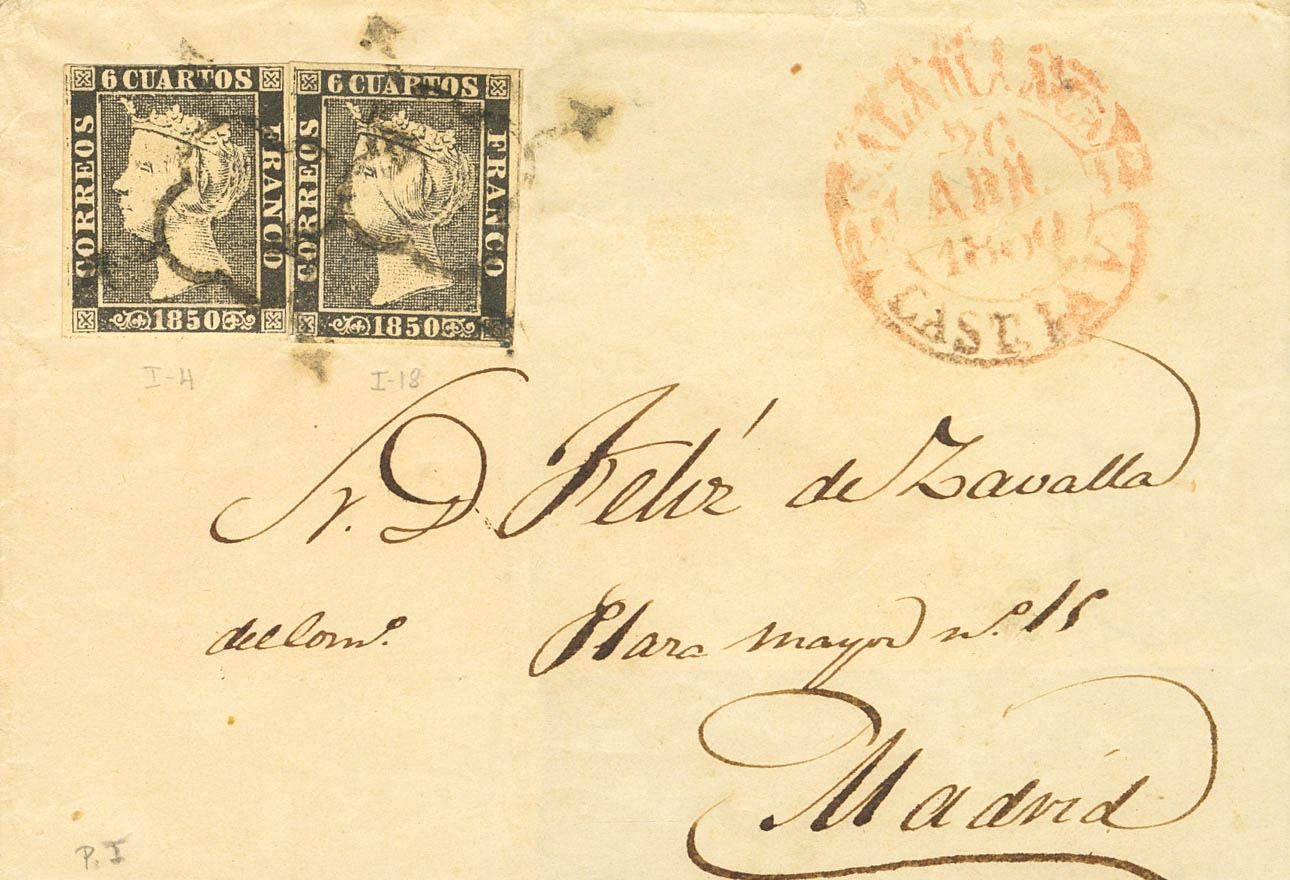 6 CUARTOS
CORREOS
FRANCO
1850
6 CUARTOS
CORREOS
FRANCO
1850
SALAMANCA
26
ABR.
1850
CAST. LA V.
I-4
I-18
S. D. Feliz de Zavalla
del Com.º
Plaza mayor n.º 15
Madrid
P. I